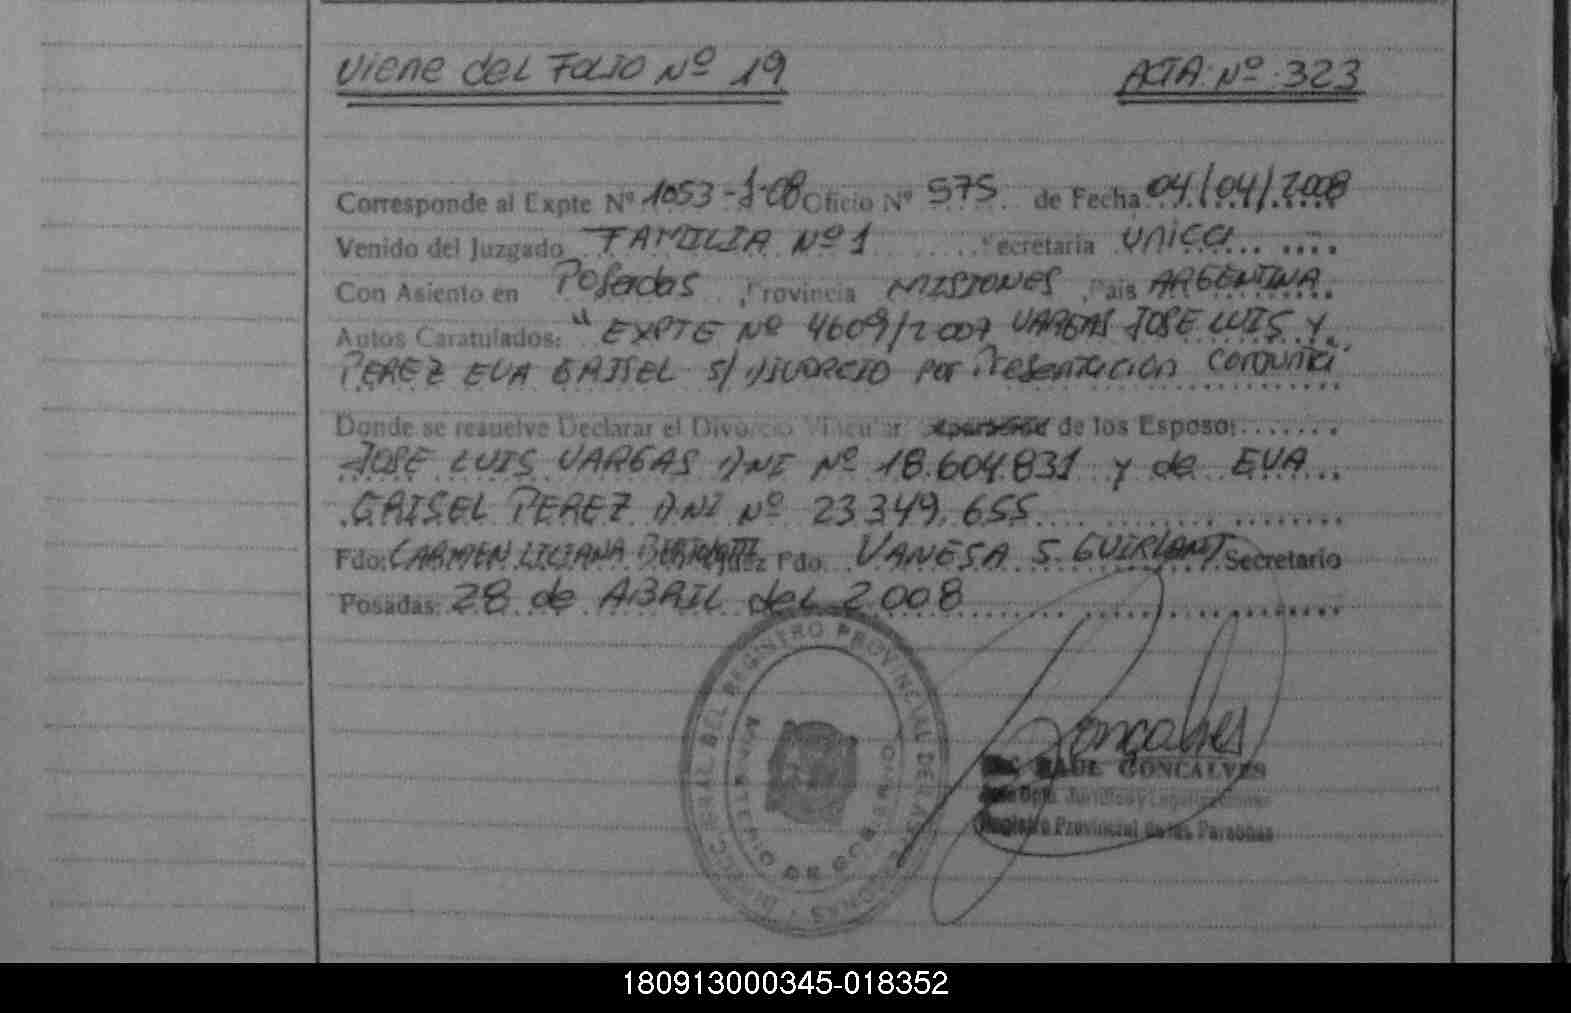 Viene del Folio Nº 19
ACTA: Nº 323
Corresponde al Expte Nº 1053-1-08 Oficio Nº 575 de Fecha 04/04/2008
Venido del Juzgado FAMILIA Nº 1 Secretaria UNICA
Con Asiento en Posadas, Provincia MISIONES, Pais ARGENTINA
Autos Caratulados: "EXPTE Nº 4609/2007 VARGAS JOSE LUIS Y
PEREZ EVA GRISEL S/ DIVORCIO por Presentación Conjunta"
Donde se resuelve Declarar el Divorcio Vincular de los Esposos
JOSE LUIS VARGAS DNI Nº 18.604.831 y de EVA
GRISEL PEREZ DNI Nº 23.349.655
Fdo: CARMEN LILIANA Juez Fdo. VANESA S. Secretario
Posadas: 28 de ABRIL del 2008
REGISTRO PROVINCIAL DE LAS PERSONAS
Goncalves
RAUL GONCALVES
Jefe Dpto. Juridico y Legalizaciones
Registro Provincial de las Personas
180913000345-018352